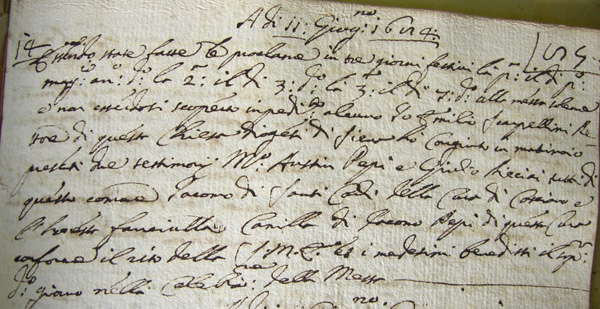 A dì 11: Giug:no 1684:
14 Essendo state fatte le proclame in tre giorni festivi la p:a il dì p:o
magg:o an: d:o la 2:a il dì 3: d:o la 3:a il dì 7: d:o alla messa solenne
e non essendosi scoperto impedi:to alcuno Io Emilio Scarpellini Re-
ttore di questa Chiesa di Siena ho Congiunto in matrimonio
presenti due testimonj M:o Austin Pepi e Giulio tutti di
questo comune Iacomo di Santi della Cura di e
honesta fanciulla Camilla di Iacomo Pepi di questa Cura
conforme il rito della S. M. C. et i medesimi benedetti il
d:o giorno nella Celebra:ne della Messa
no: